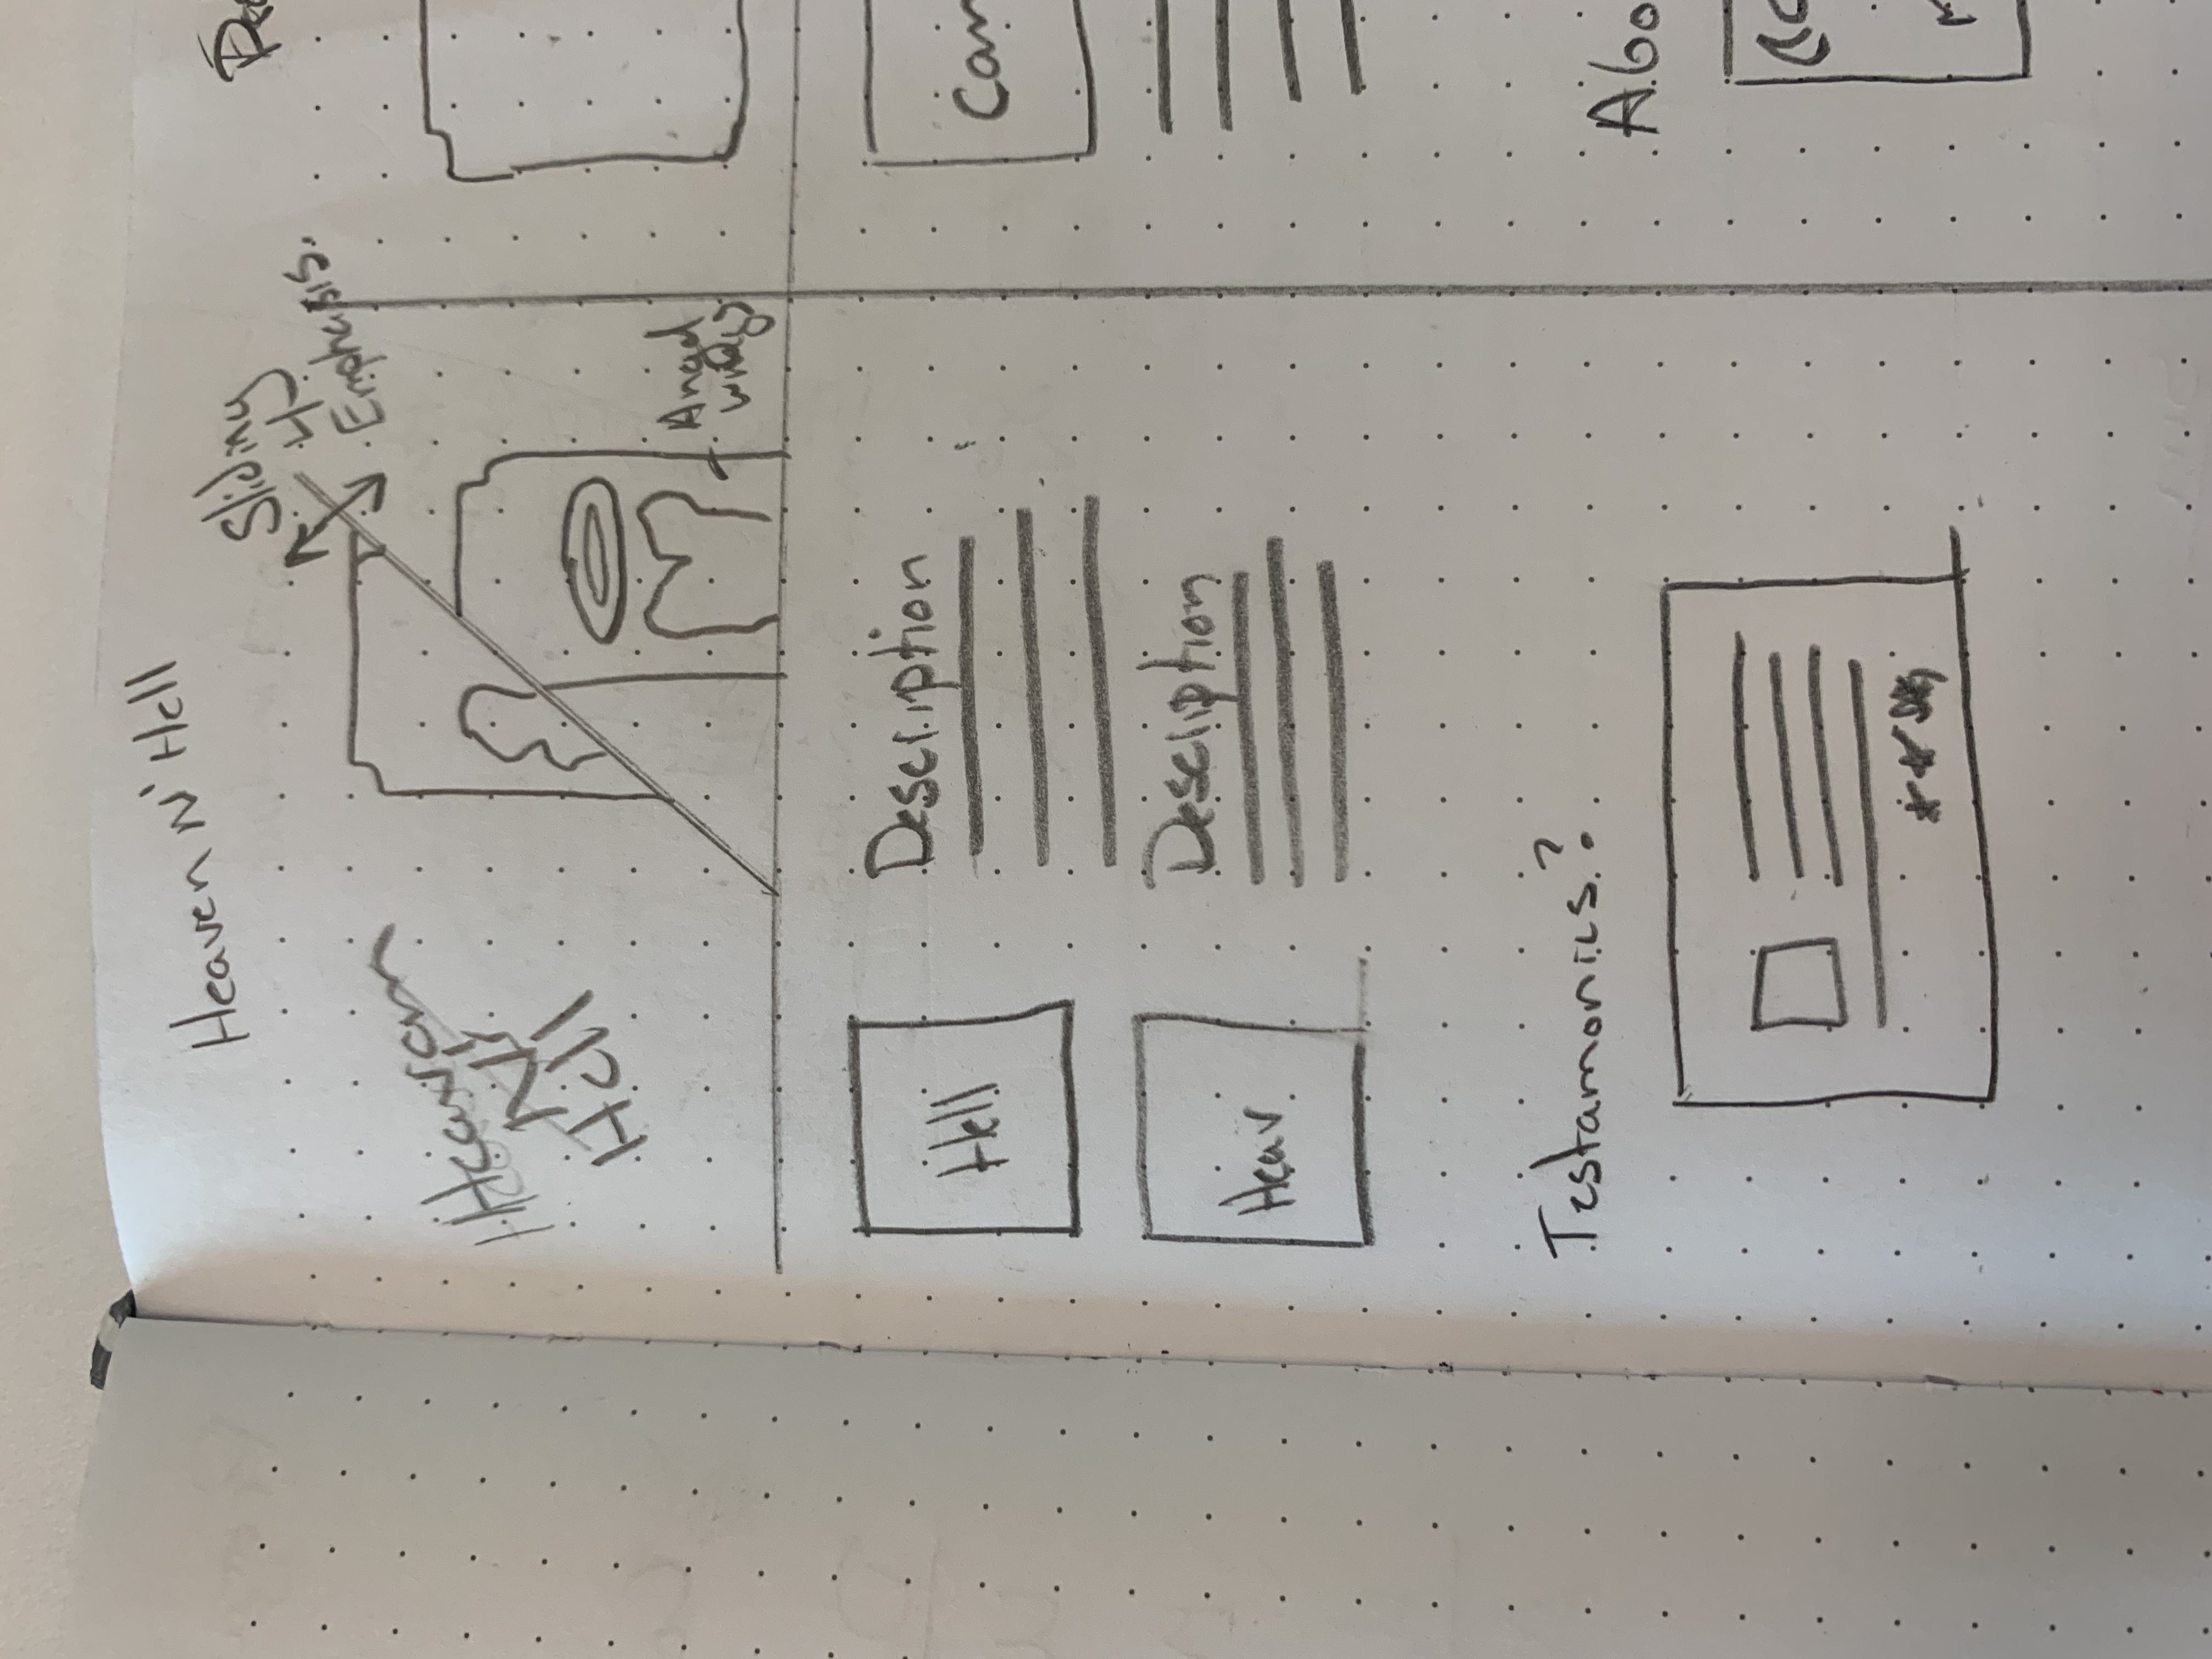 Heaven N' Hell
Sliding
4
Emphasis.
Heaven
N'
Hell
Angel
wings
Hell
Description
Heav
Description
Testamonies?
Can
Abo